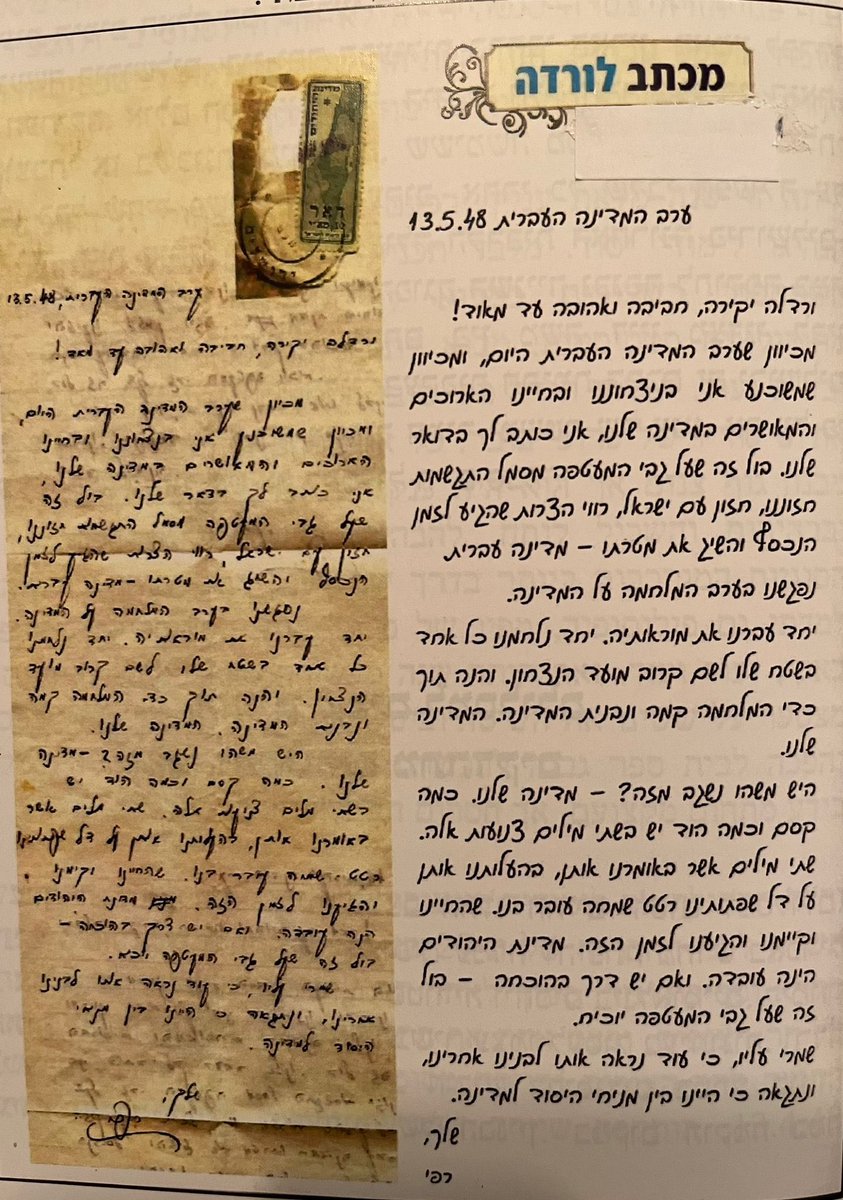 מכתב לורדה
ערב המדינה העברית 13.5.48
ורדלה יקירה, חביבה ואהובה עד מאוד!
מכיוון שערב המדינה העברית היום, ומכיוון
שמשוכנע אני בניצחוננו ובחיינו הארוכים
והמאושרים במדינה שלנו, אני כותב לך בדואר
שלנו. בול זה שעל גבי המעטפה מסמל התגשמות
חזוננו, חזון עם ישראל, רווי הצרות שהגיע לזמן
הנכסף והשיג את מטרתו – מדינה עברית
נפגשנו בערב המלחמה על המדינה.
יחד עברנו את מוראותיה. יחד נלחמנו כל אחד
בשטח שלו לשם קרוב מועד הנצחון. והנה תוך
כדי המלחמה קמה ונבנית המדינה. המדינה
שלנו.
היש משהו נשגב מזה? – מדינה שלנו. כמה
קסם וכמה הוד יש בשתי מילים צנועות אלה.
שתי מילים אשר באומרנו אותן, בהעלותנו אותן
על דל שפתותינו רטט שמחה עובר בנו. שהחיינו
וקיימנו והגיענו לזמן הזה. מדינת היהודים
הינה עובדה. ואם יש דרך בהוכחה – בול
זה שעל גבי המעטפה יוכיח.
שמרי עליו, כי עוד נראה אותו לבנינו אחרינו,
ונתגאה כי היינו בין מניחי היסוד למדינה.
שלך,
רפי
דאר
ערב המדינה העברית, 13.5.48
ורדלה יקירה, חביבה ואהובה עד מאד!
מכיון שערב המדינה העברית היום,
ומכיון שמשוכנע אני בנצחוננו ובחיינו
הארוכים והמאושרים במדינה שלנו,
אני כותב לך בדאר שלנו. בול זה
שעל גבי המעטפה מסמל התגשמות חזוננו,
חזון עם ישראל, רווי הצרות שהגיע לזמן
הנכסף והשיג את מטרתו – מדינה עברית.
נפגשנו בערב המלחמה על המדינה.
יחד עברנו את מוראותיה. יחד נלחמנו
כל אחד בשטח שלו לשם קרוב מועד
הנצחון. והנה תוך כדי המלחמה קמה
ונבנית המדינה. המדינה שלנו.
היש משהו נשגב מזה? – מדינה
שלנו. כמה קסם וכמה הוד יש
בשתי מלים צנועות אלה. שתי מלים אשר
באומרנו אותן, בהעלותנו אותן על דל שפתותינו
רטט שמחה עובר בנו. שהחיינו וקימנו
והגיענו לזמן הזה. מדינת היהודים
הנה עובדה. ואם יש צרך בהוכחה –
בול זה שעל גבי המעטפה יוכיח.
שמרי עליו, כי עוד נראה אותו לבנינו
אחרינו, ונתגאה כי היינו בין מניחי
היסוד למדינה.
שלך,